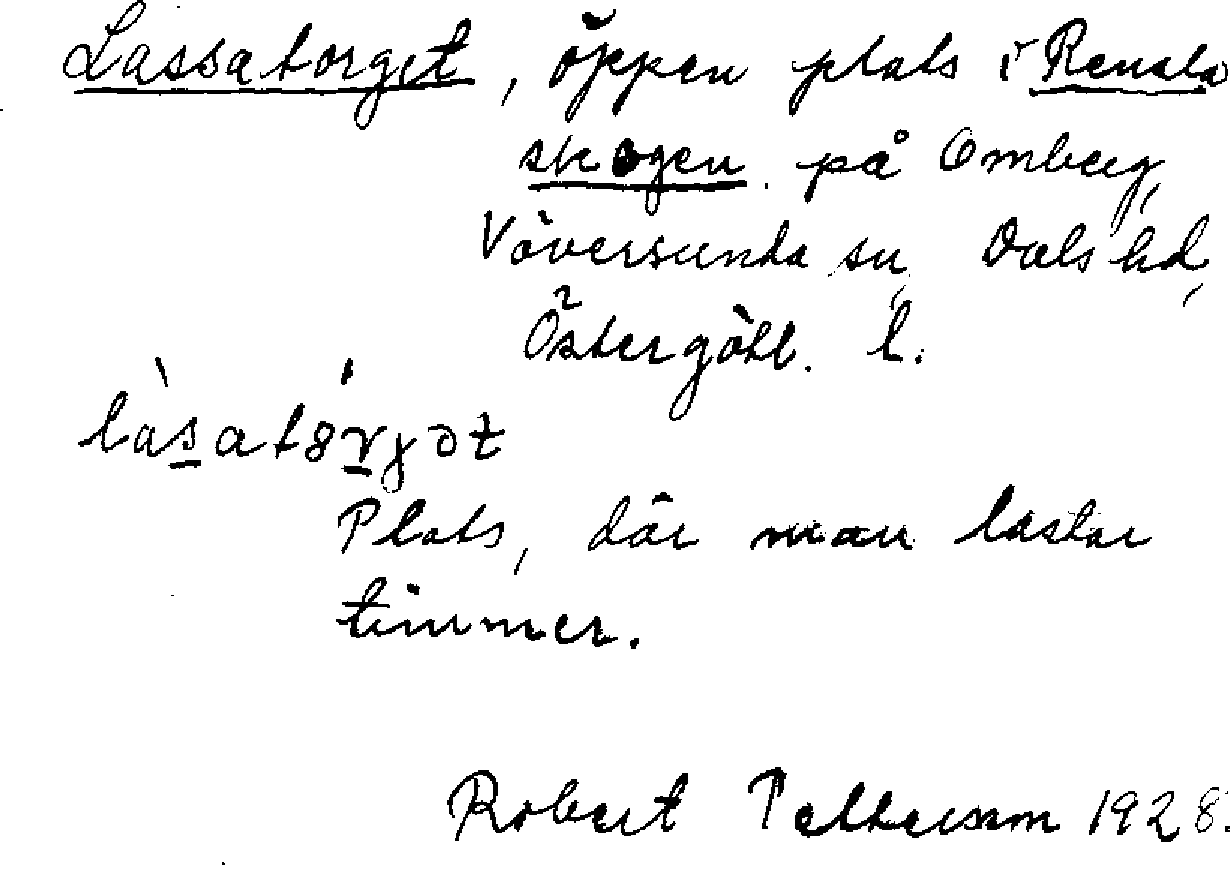 Lassatorget, öppen plats i Renala
skogen på Omberg,
Väversunda sn, Dals hd,
Östergötl. l.
Plats, där man lastar
timmer.
Robert Pettersson 1928.